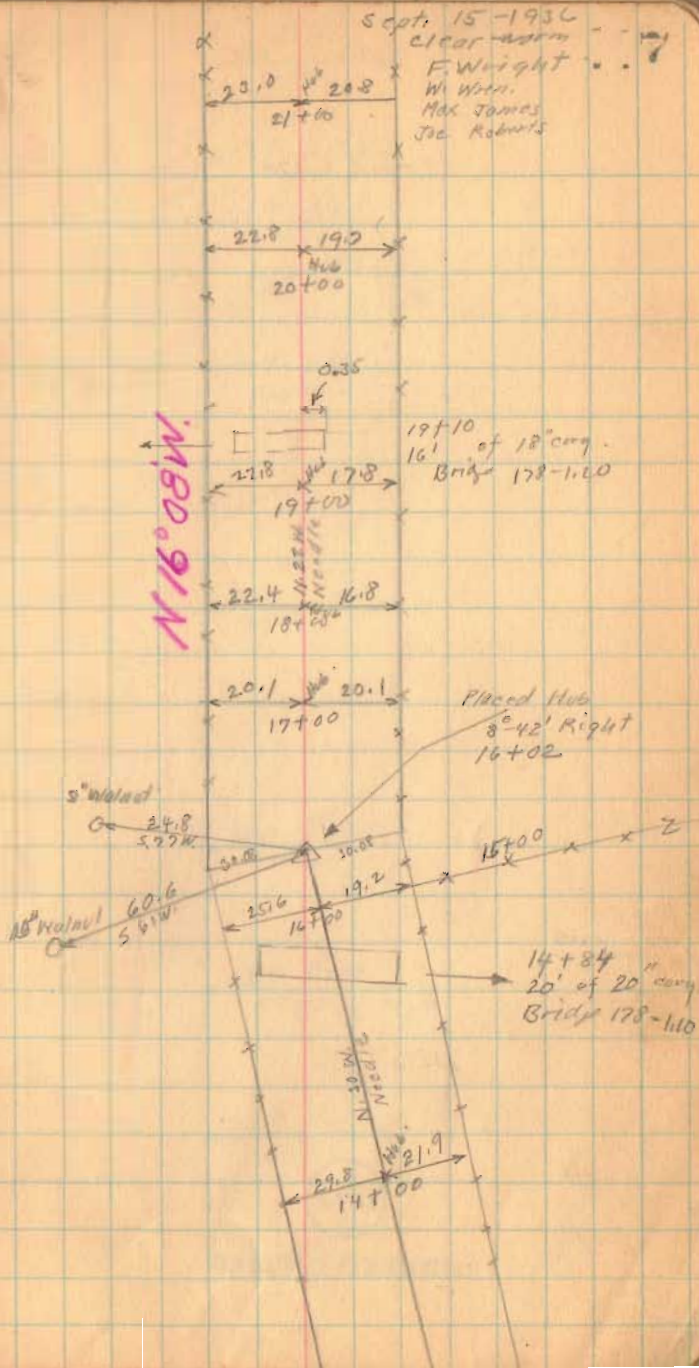 Sept. 15-1936
Clear-warm
7
F. Wright
W. Wren.
Max James
Joe Roberts
23.0 Hub 20.8
21+00
22.8 19.2
Hub
20+00
0.35
19+10
16' of 18" corg.
Bridge 178-1.20
22.8 Hub 17.8
19+00
N 16° 08' W.
N. 22 W.
Needle
22.4 16.8
18+00
20.1 Hub 20.1
17+00
Placed Hub
8°-42' Right
16+02
8" Walnut
24.8
S. 77 W.
30.08 30.08
15+00
60.6
S 61 W.
Walnut
25.6 19.2
16+00
14+84
20' of 20" corg
Bridge 178-1.10
N. 30 W.
Needle
29.8 Hub. 21.9
14+00